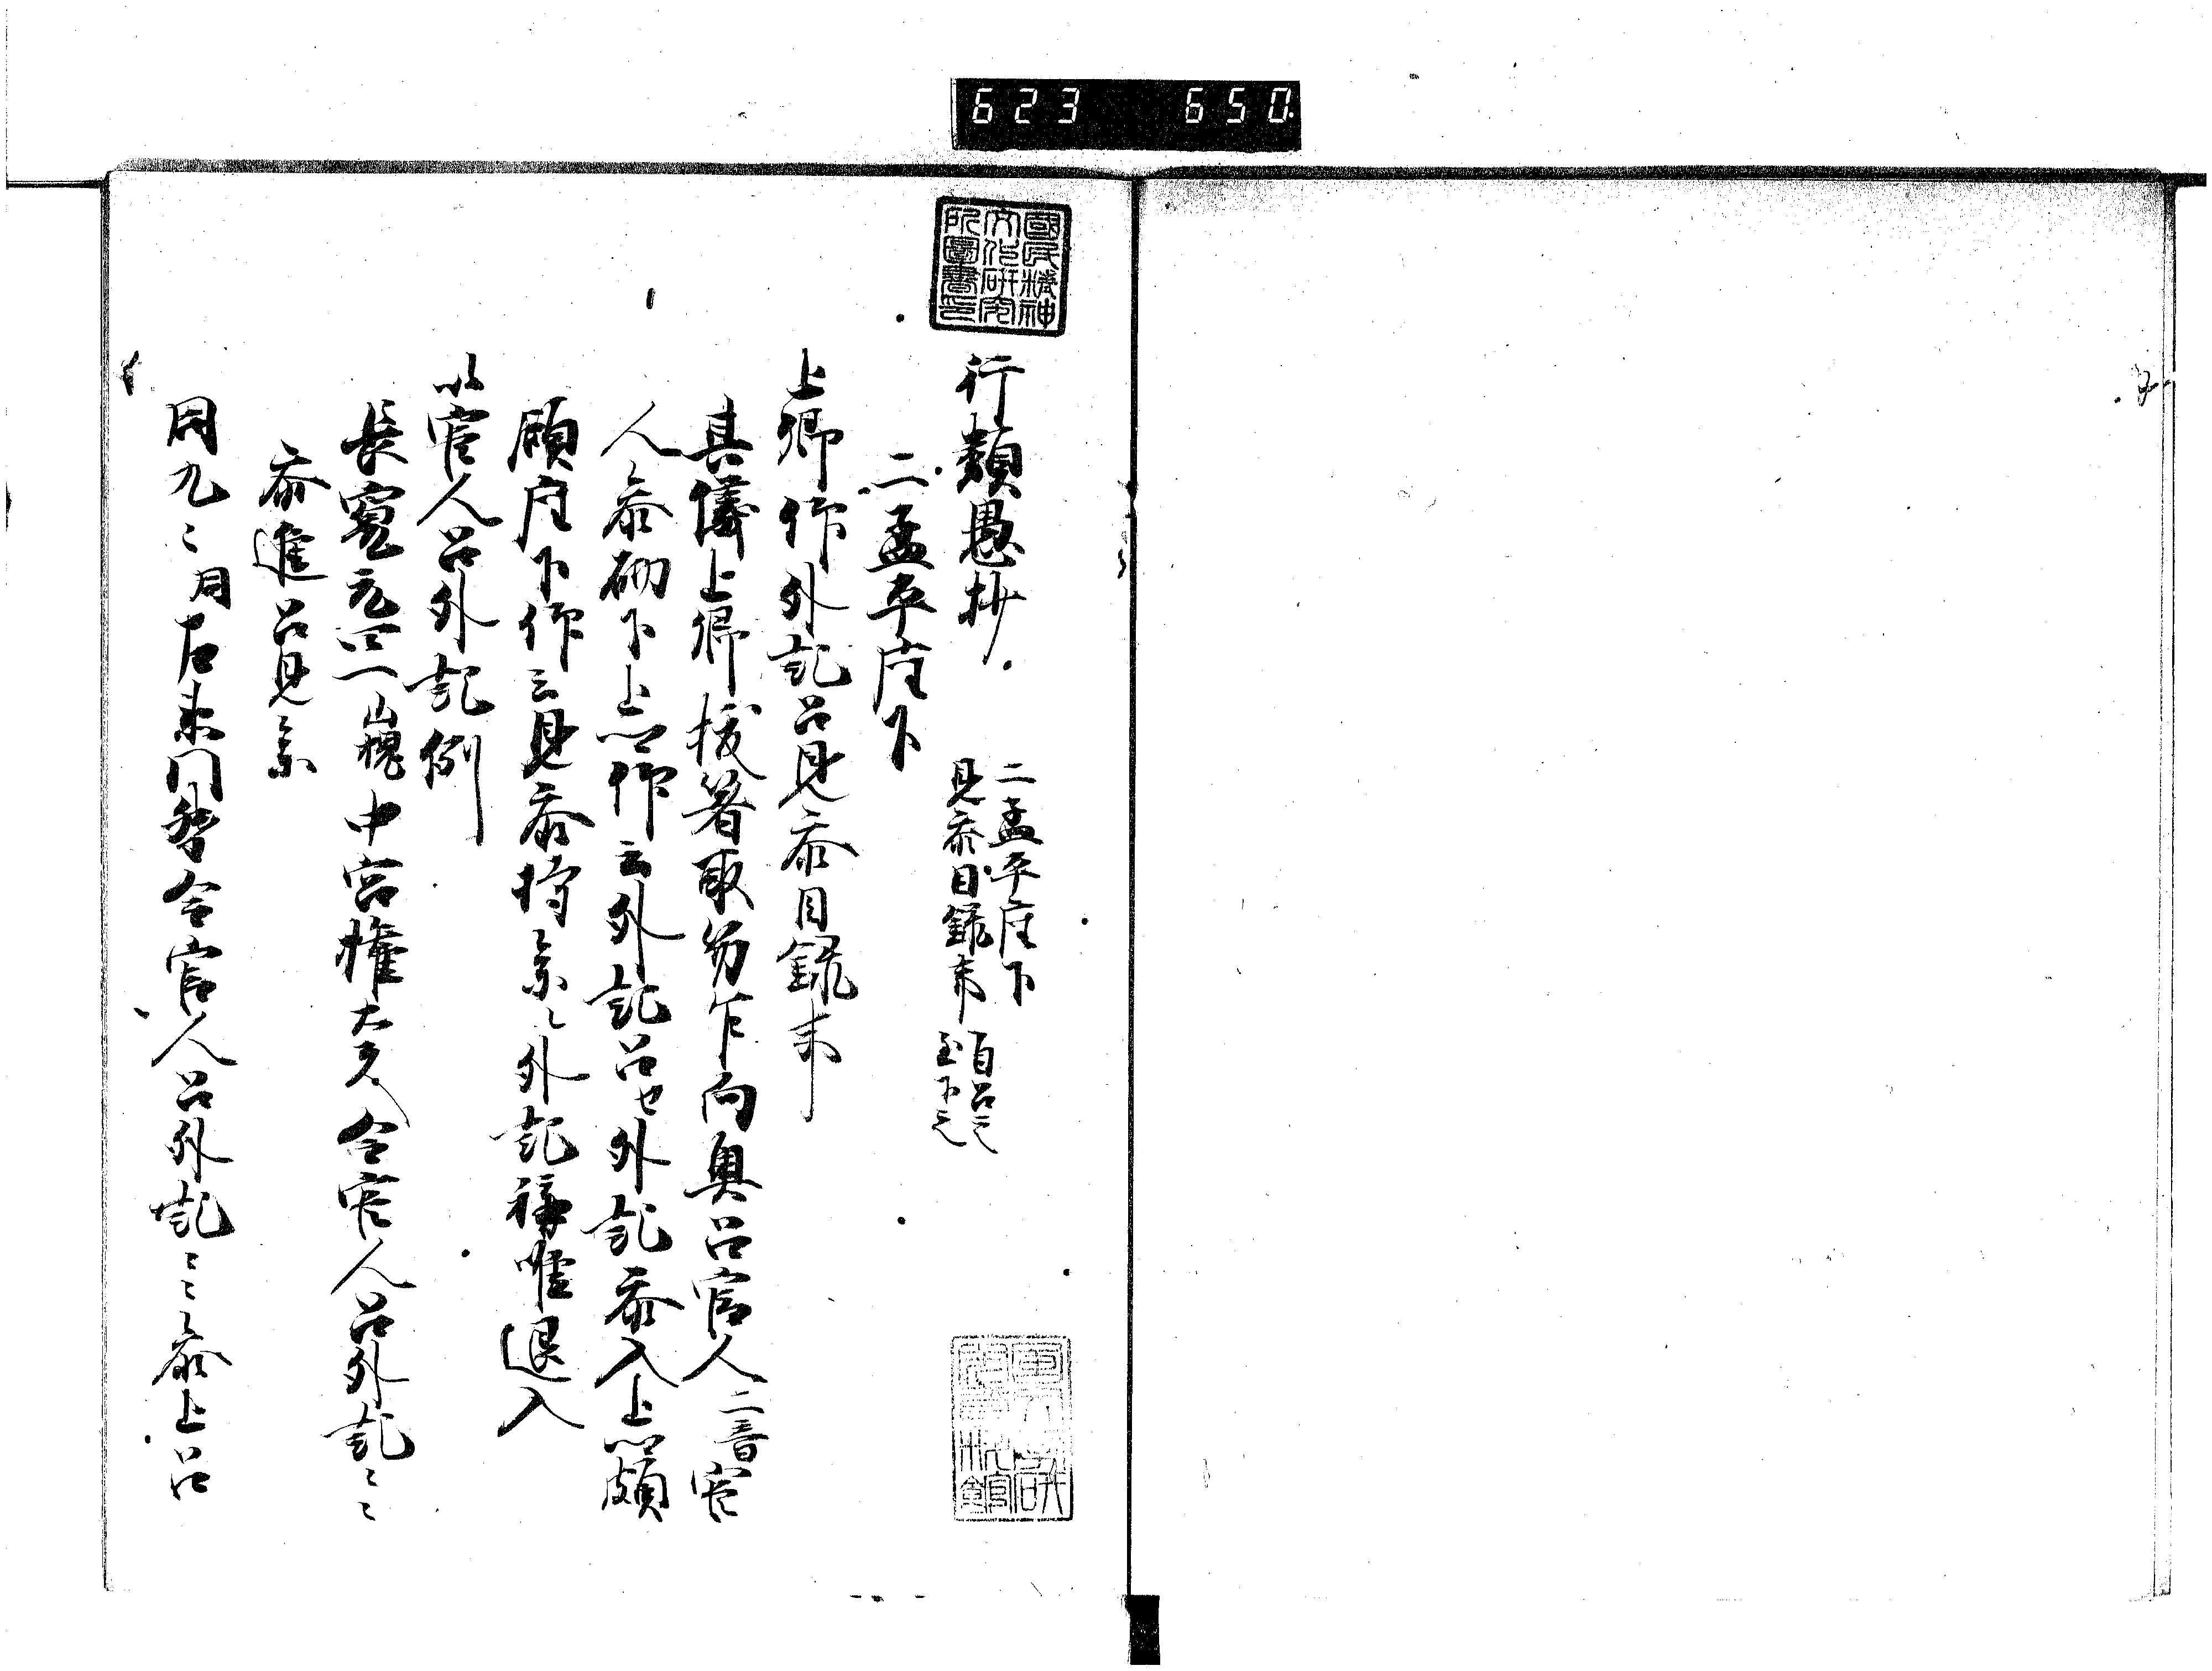 623 650
國民精神
文化研究
所圖書印
行類愚抄
二孟平座下
見参目録事
自召之
至下之
二孟平座下
上卿仰外記召見参目録事
其儀上卿抜箸取笏乍向奥召官人二音官
人参砌下上卿仰云外記召せ外記参入上卿頗
顧座下仰云見参持参々外記称唯退入
以官人召外記例
長寛元四一山槐中宮権大夫令官人召外記々々
参進召見参
同九々月右来門督令官人召外記々々参上召